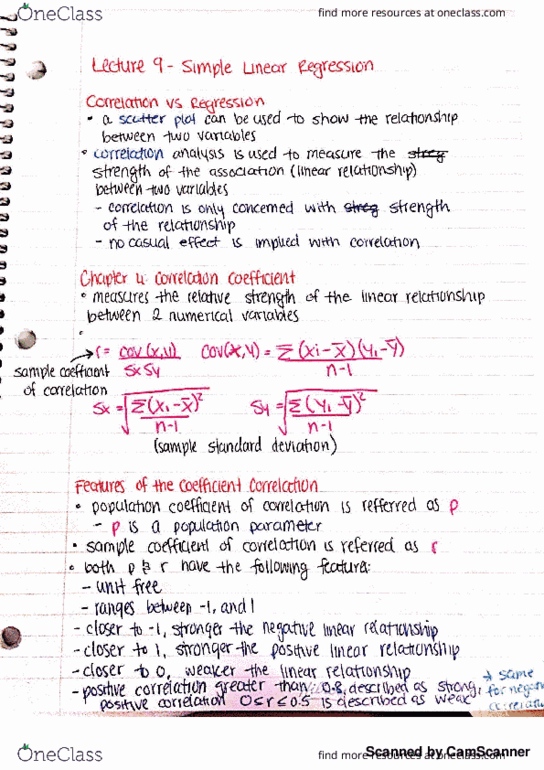 OneClass
find more resources at oneclass.com
Lecture 9 - Simple Linear Regression
Correlation vs Regression
• a scatter plot can be used to show the relationship
between two variables
• correlation analysis is used to measure the streg
strength of the association (linear relationship)
between two variables
- correlation is only concerned with streg strength
of the relationship
- no casual effect is implied with correlation
Chapter 4: Correlation Coefficient
• measures the relative strength of the linear relationship
between 2 numerical variables
•
→ r = cov(x,y) / SxSy    cov(x,y) = Σ(xi-x̄)(yi-ȳ) / n-1
sample coefficient
of correlation
Sx = √(Σ(xi-x̄)² / n-1)    Sy = √(Σ(yi-ȳ)² / n-1)
(sample standard deviation)
Features of the Coefficient Correlation
• population coefficient of correlation is reffered as p
- p is a population parameter
• sample coefficient of correlation is referred as r
• both p & r have the following feature:
- unit free
- ranges between -1, and 1
- closer to -1, stronger the negative linear relationship
- closer to 1, stronger the positive linear relationship
- closer to 0, weaker the linear relationship
- positive correlation greater than 0.8, described as strong,
positive correlation 0≤r≤0.5 is described as weak
→ same
for negative
correlation
OneClass
find more resources at oneclass.com
Scanned by CamScanner